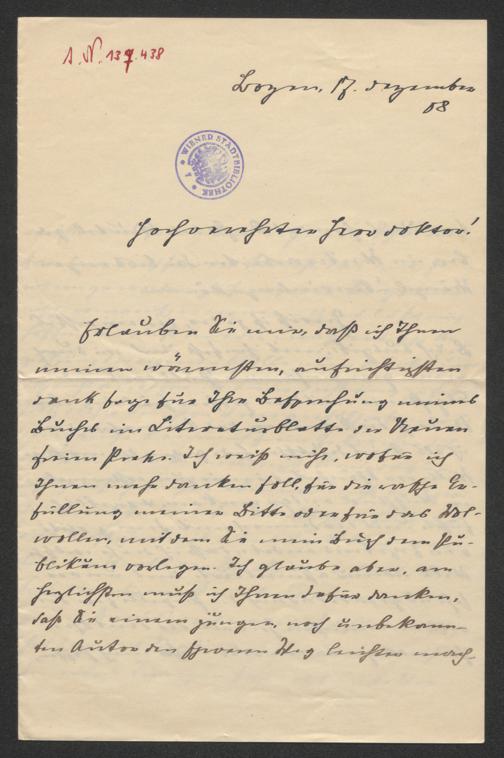 I. N. 137.438
Bozen, 17. Dezember
08
WIENER STADTBIBLIOTHEK
Hochverehrter Herr Doktor!
Erlauben Sie mir, daß ich Ihnen
meinen wärmsten, aufrichtigsten
Dank sage für Ihre Besprechung meines
Buches im Literaturblatte der Neuen
freien Presse. Ich weiß nicht, wofür ich
Ihnen mehr danken soll, für die rasche Er-
füllung meiner Bitte oder für das Wol-
wollen, mit dem Sie mein Buch dem Pu-
blikum vorlegen. Ich glaube aber, am
herzlichsten muß ich Ihnen dafür danken,
daß Sie einem jungen, noch unbekann-
ten Autor den schweren Weg leichter mach-